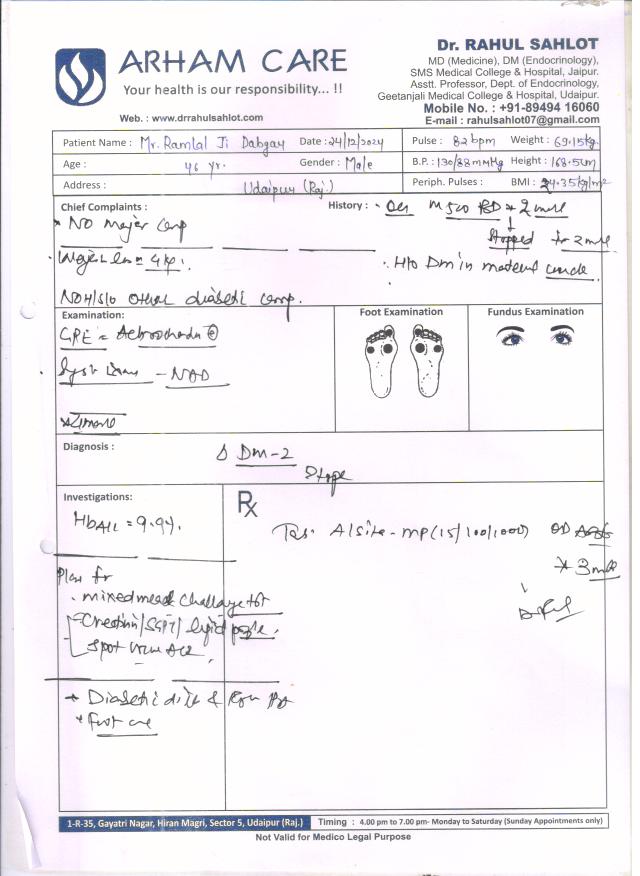 ARHAM CARE
Your health is our responsibility... !!
Web. : www.drrahulsahlot.com
Dr. RAHUL SAHLOT
MD (Medicine), DM (Endocrinology),
SMS Medical College & Hospital, Jaipur.
Asstt. Professor, Dept. of Endocrinology,
Geetanjali Medical College & Hospital, Udaipur.
Mobile No. : +91-89494 16060
E-mail : rahulsahlot07@gmail.com
Patient Name : Mr. Ramlal Ji Dabgar Date : 24/12/2024 Pulse : 82 bpm Weight : 69.15kg
Age : 46 yr. Gender : Male B.P. : 130/88 mmHg Height : 168.5cm
Address : Udaipur (Raj.) Periph. Pulses : BMI : 24.35kg/m²
Chief Complaints : History :
M 500 BD × 2
NO Major Comp
Stopped for 2
= 4kg.
H/o Dm in maternal uncle
other diabetic comp.
Examination: Foot Examination Fundus Examination
GPE =
- NAD
Diagnosis :
Δ Dm-2
Investigations: Rx
HbA1c = 9.9%.
Tab. (15/100/1000) OD
× 3
Plan for
. mixed meal challenge test
Creatinin/SGPT/lipid profile.
Spot urine ACR
Diabetic diet &
Foot care
1-R-35, Gayatri Nagar, Hiran Magri, Sector 5, Udaipur (Raj.) Timing : 4.00 pm to 7.00 pm- Monday to Saturday (Sunday Appointments only)
Not Valid for Medico Legal Purpose